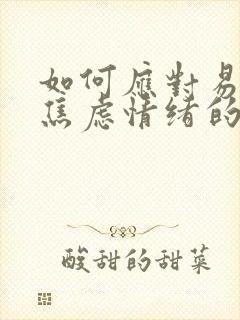 如何應對易
焦虑情绪的
酸甜的甜菜